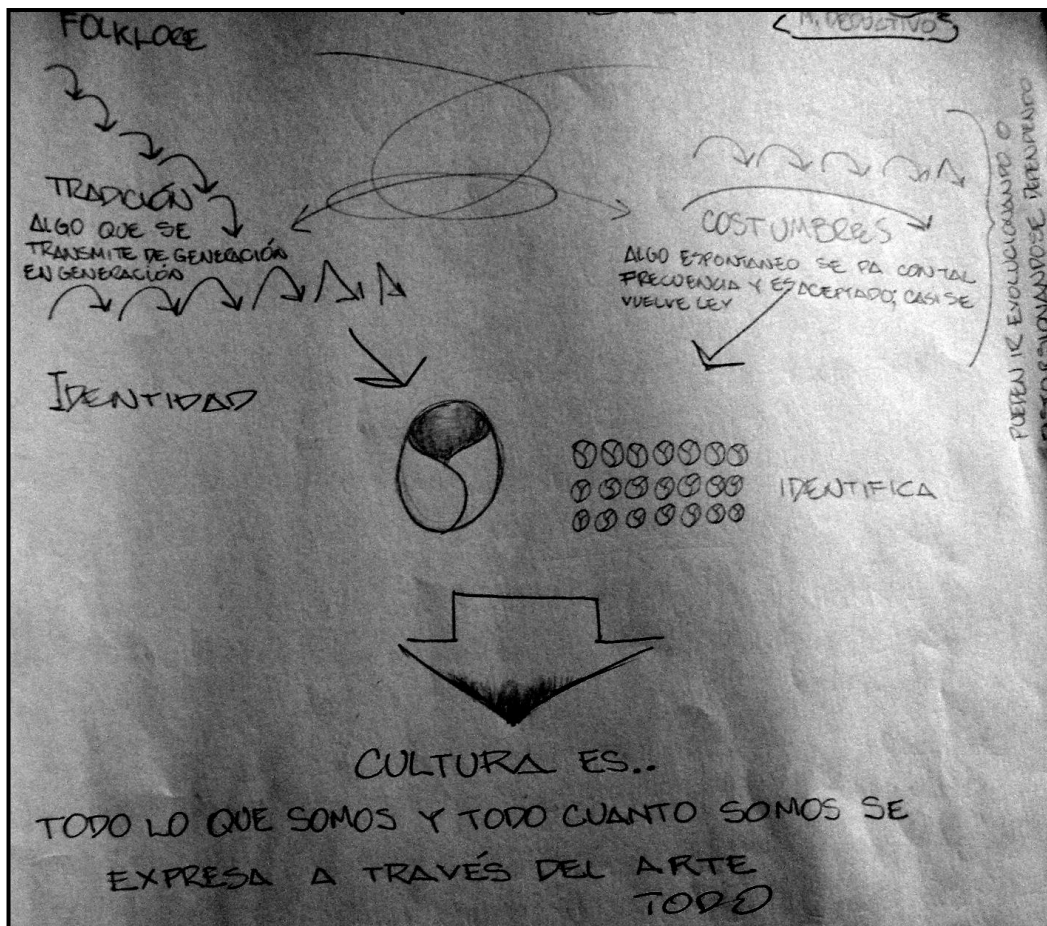 FOLKLORE
M. DEDUCTIVO
TRADICIÓN
ALGO QUE SE
TRANSMITE DE GENERACIÓN
EN GENERACIÓN
COSTUMBRES
ALGO ESPONTANEO SE DA CON TAL
FRECUENCIA Y ES ACEPTADO, CASI SE
VUELVE LEY
PUEDEN IR EVOLUCIONANDO O
DISTORSIONANDOSE DEPENDIENDO
IDENTIDAD
IDENTIFICA
CULTURA ES..
TODO LO QUE SOMOS Y TODO CUANTO SOMOS SE
EXPRESA A TRAVÉS DEL ARTE
TODO